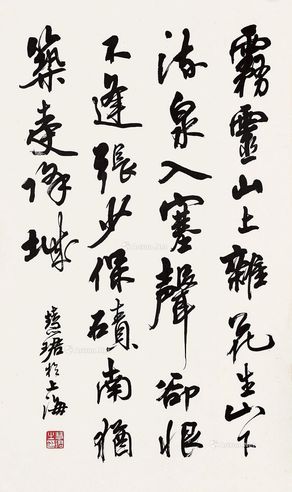 霧靈山上雜花生山下
流泉入塞聲卻恨
不逢張少保磧南猶
築受降城
慧珺於上海